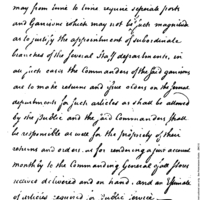 may from time to time require seperate posts
and Garrisons which may not be just magnitud
as to justify the appointment of subordinate
branches of the several Staff departments, in
all such cases the Commanders of the said garrisons
are to make returns and give orders on the several
departments for such articles as shall be allowed
by the Public and the said Commanders shall
be responsible as well for the propriety of their
returns and orders, as for rendering a just account
monthly to the Commanding General of all Stores
received delivered and on hand, and an Estimate
of articles required for Public Service